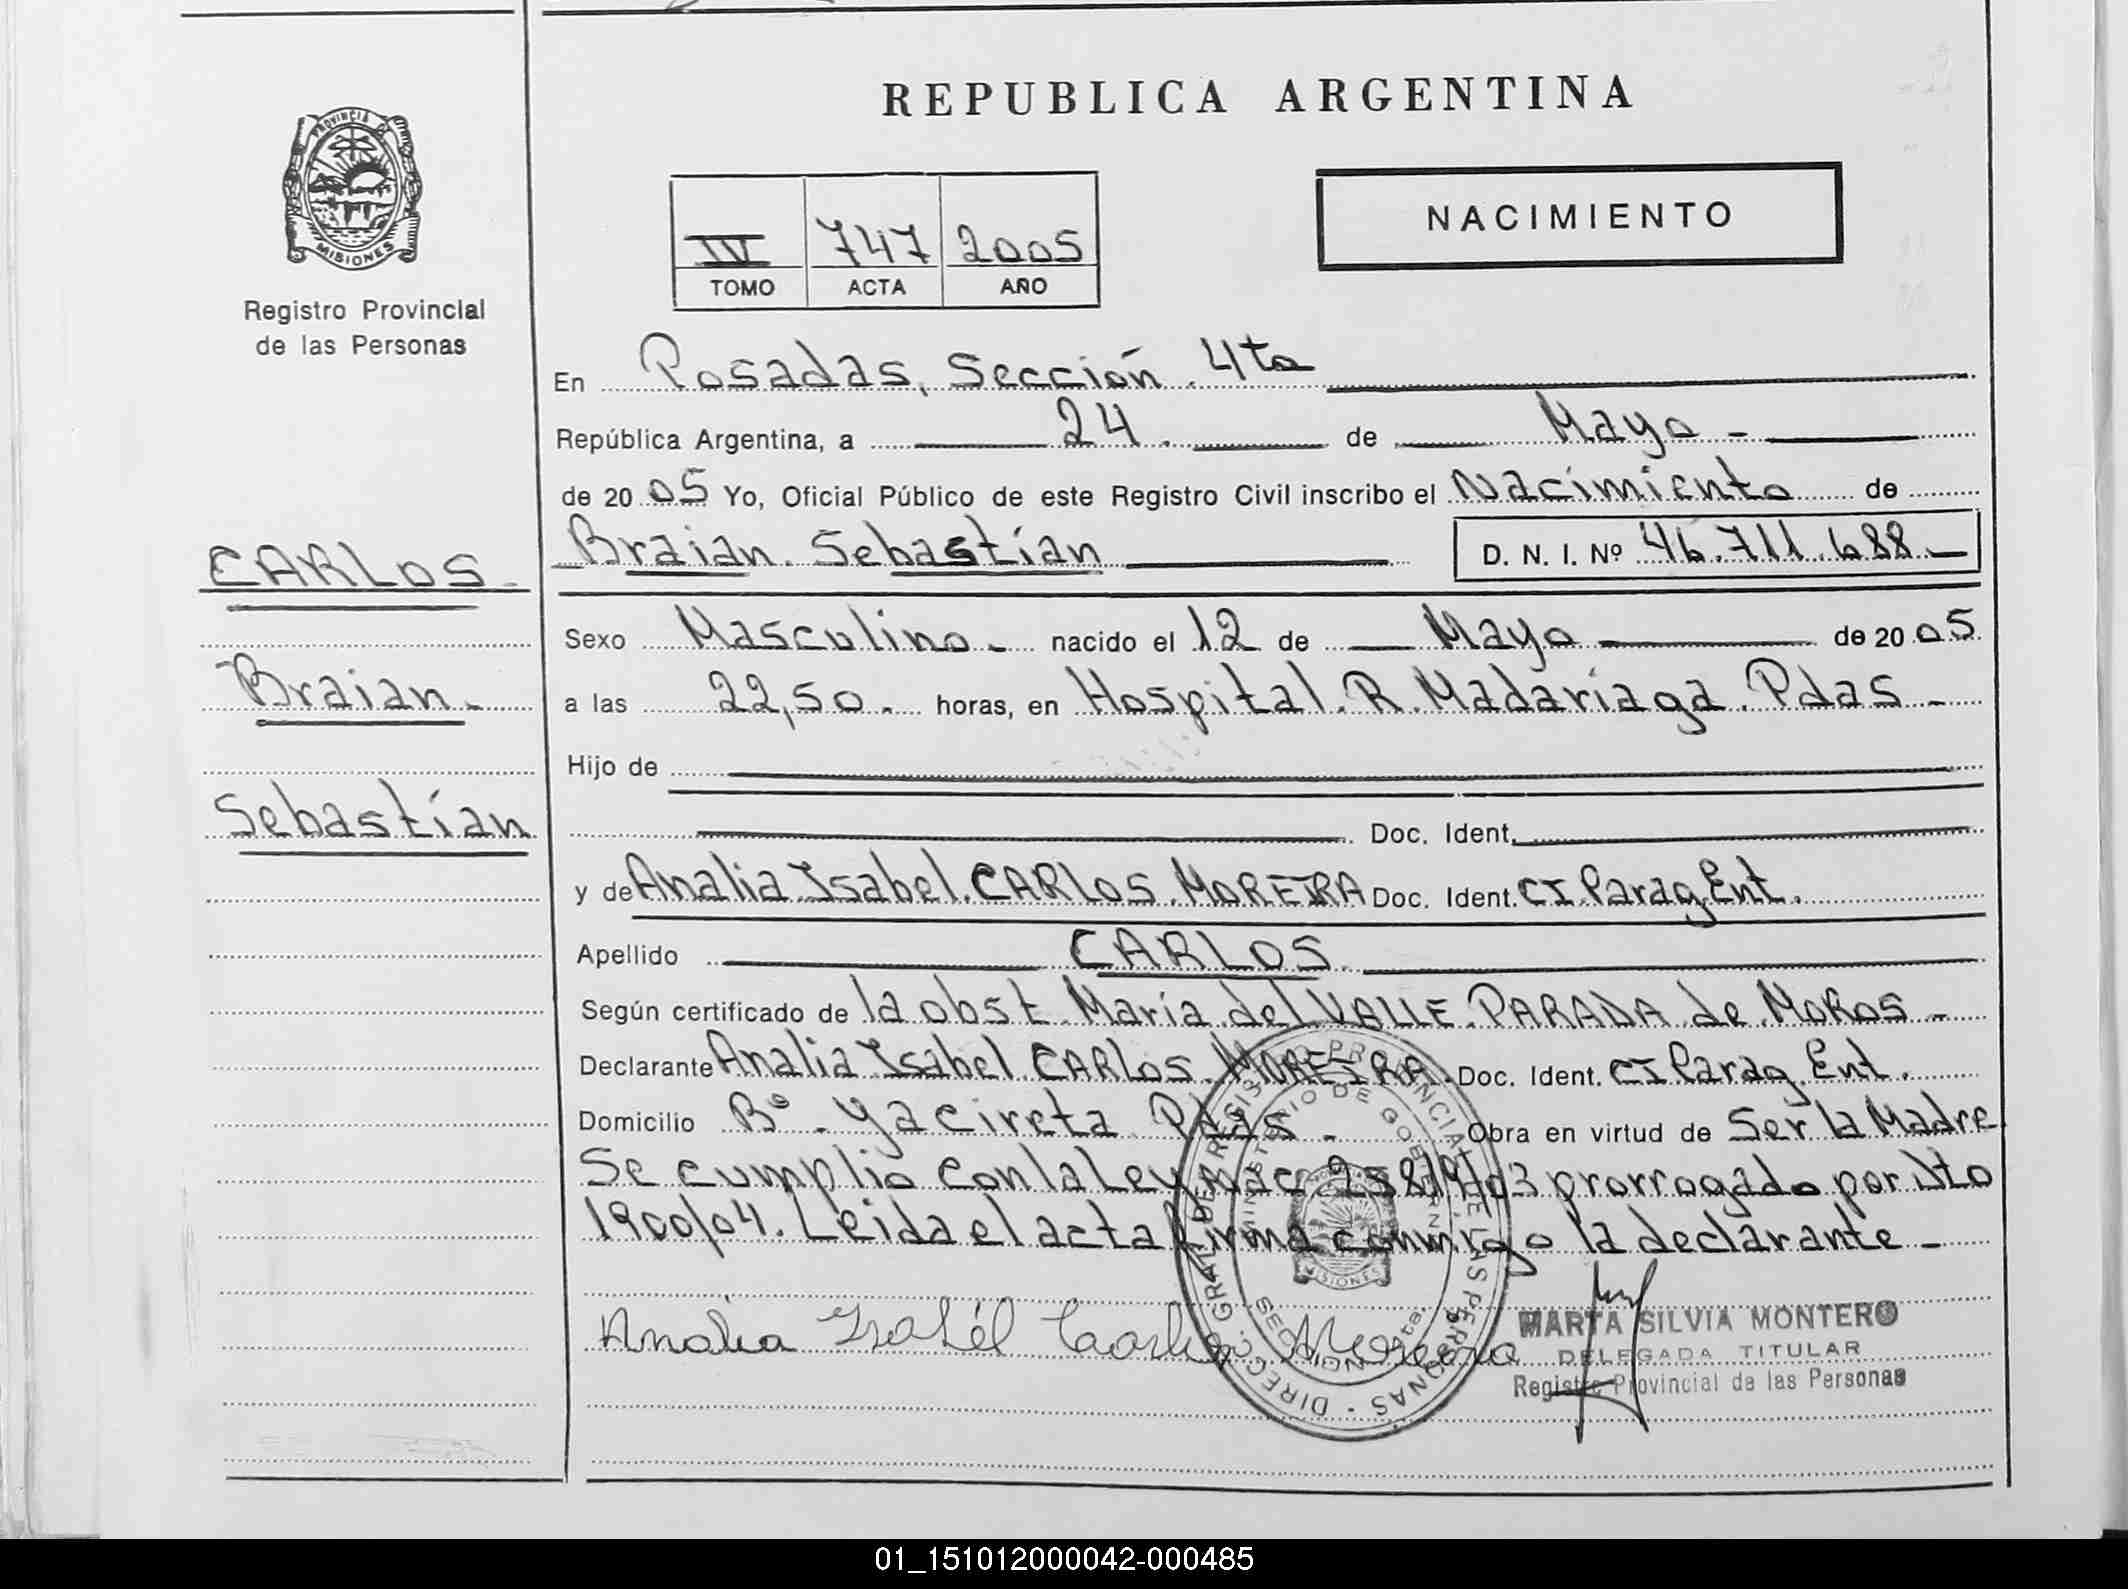 REPUBLICA ARGENTINA
PROVINCIA DE
MISIONES
Registro Provincial
de las Personas
NACIMIENTO
IV 747 2005
TOMO ACTA AÑO
En Posadas, Sección 4ta
República Argentina, a 24 de Mayo
de 2005 Yo, Oficial Público de este Registro Civil inscribo el Nacimiento de
Braian Sebastían D. N. I. Nº 46.711.688
CARLOS
Braian
Sebastían
Sexo Masculino nacido el 12 de Mayo de 2005
a las 22,50 horas, en Hospital R. Madariaga Pdas
Hijo de
Doc. Ident.
y de Analia Isabel CARLOS MOREIRA Doc. Ident. CI Parag Ent.
Apellido CARLOS
Según certificado de la obst María del VALLE PARADA de MOROS
Declarante Analia Isabel CARLOS MOREIRA Doc. Ident. CI Parag. Ent.
Domicilio Bº Yacireta Pdas Obra en virtud de Ser la Madre
Se cumplio con la Ley Nac 25819/03 prorrogado por Dto
1900/04. Leida el acta firma conmigo la declarante
Analia Isabél Carlos Moreira
DIREC. GRAL. DEL REGISTRO PROVINCIAL DE LAS PERSONAS
MINISTERIO DE GOBIERNO
MISIONES
SECCION 4ta.
MARTA SILVIA MONTERO
DELEGADA TITULAR
Registro Provincial de las Personas
01_151012000042-000485